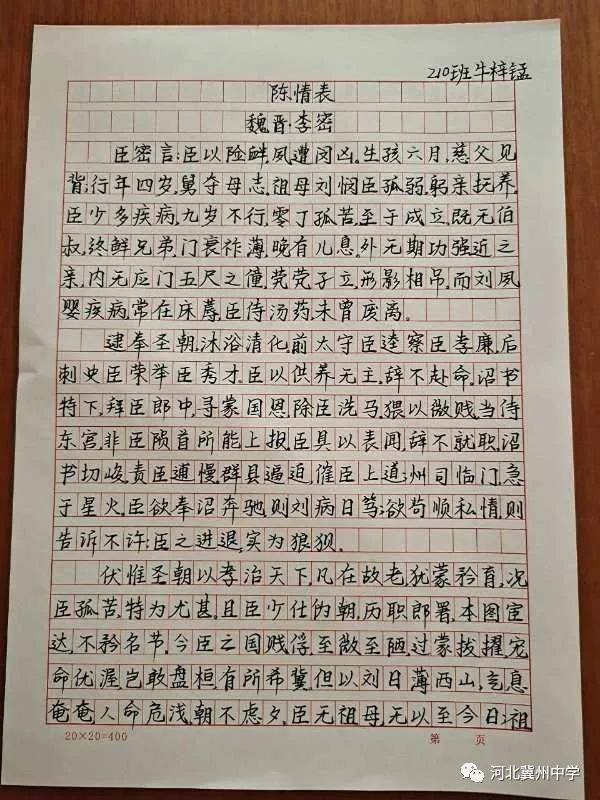 210班牛梓锰
陈情表
魏晋·李密
臣密言:臣以险衅,夙遭闵凶,生孩六月,慈父见
背;行年四岁,舅夺母志,祖母刘悯臣孤弱,躬亲抚养,
臣少多疾病,九岁不行,零丁孤苦,至于成立,既无伯
叔,终鲜兄弟,门衰祚薄,晚有儿息,外无期功强近之
亲,内无应门五尺之僮,茕茕孑立,形影相吊,而刘夙
婴疾病,常在床蓐,臣侍汤药,未曾废离。
逮奉圣朝,沐浴清化,前太守臣逵察臣孝廉,后
刺史臣荣举臣秀才,臣以供养无主,辞不赴命,诏书
特下,拜臣郎中,寻蒙国恩,除臣洗马,猥以微贱,当侍
东宫,非臣陨首所能上报,臣具以表闻,辞不就职,诏
书切峻,责臣逋慢;群县逼迫,催臣上道;州司临门,急
于星火,臣欲奉诏奔驰,则刘病日笃;欲苟顺私情,则
告诉不许:臣之进退,实为狼狈。
伏惟圣朝以孝治天下,凡在故老,犹蒙矜育,况
臣孤苦,特为尤甚,且臣少仕伪朝,历职郎署,本图宦
达,不矜名节,今臣亡国贱俘,至微至陋,过蒙拔擢,宠
命优渥,岂敢盘桓,有所希冀,但以刘日薄西山,气息
奄奄,人命危浅,朝不虑夕,臣无祖母,无以至今日;祖
20×20=400 第 页
河北冀州中学